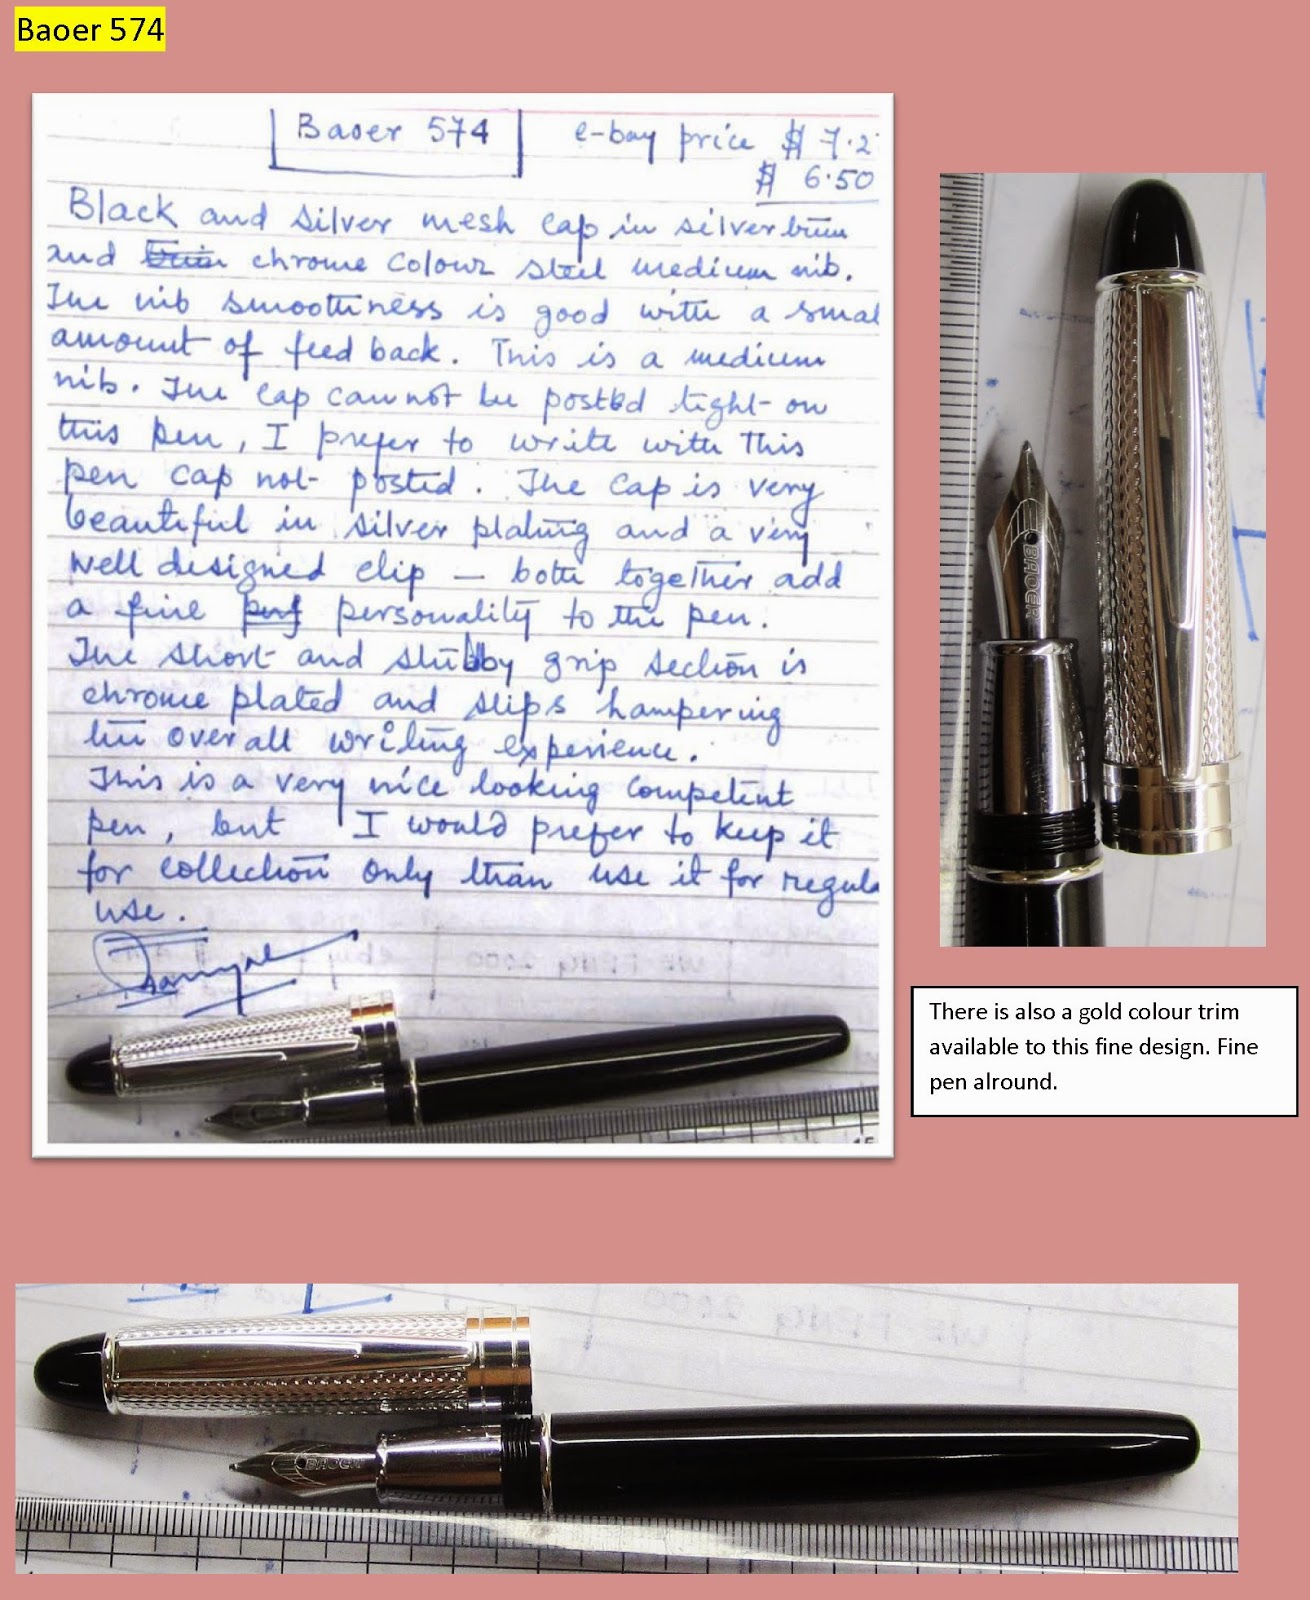 Baoer 574
Baoer 574 e-bay price $ 7.2
$ 6.50
Black and silver mesh cap in silver trim
and trim chrome colour steel medium nib.
The nib smoothness is good with a smal
amount of feed back. This is a medium
nib. The cap cannot be posted tight on
this pen, I prefer to write with this
pen cap not posted. The cap is very
beautiful in silver plating and a very
well designed clip — both together add
a fine personality to the pen.
The short and stubby grip section is
chrome plated and slips hampering
the overall writing experience.
This is a very nice looking competent
pen, but I would prefer to keep it
for collection only than use it for regula
use.
BAOER
There is also a gold colour trim
available to this fine design. Fine
pen alround.
WE PENG 2000
BAOER